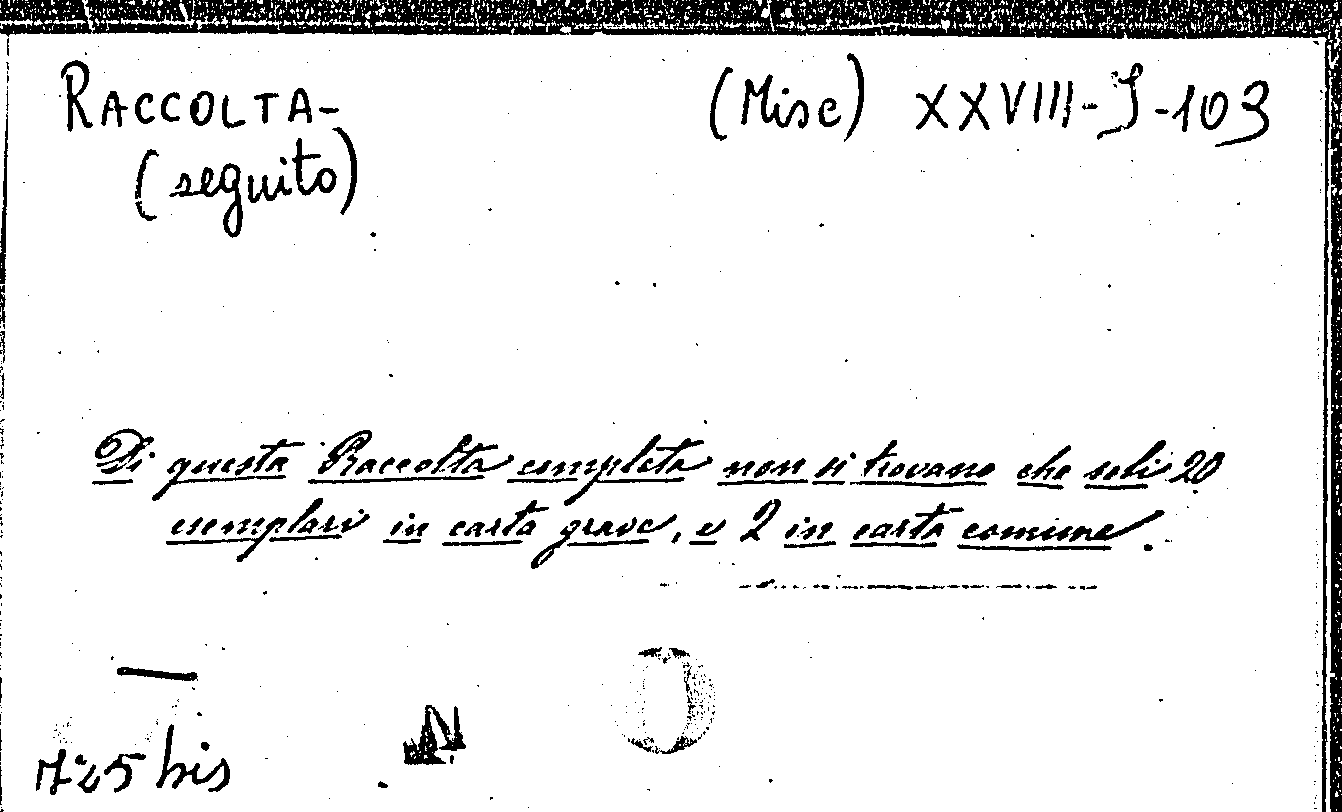 RACCOLTA- (Misc) XXVIII-J-103
(seguito)
Di questa Raccolta completa non si trovano che soli 20
esemplari in carta grave, e 2 in carta comune.
725 bis